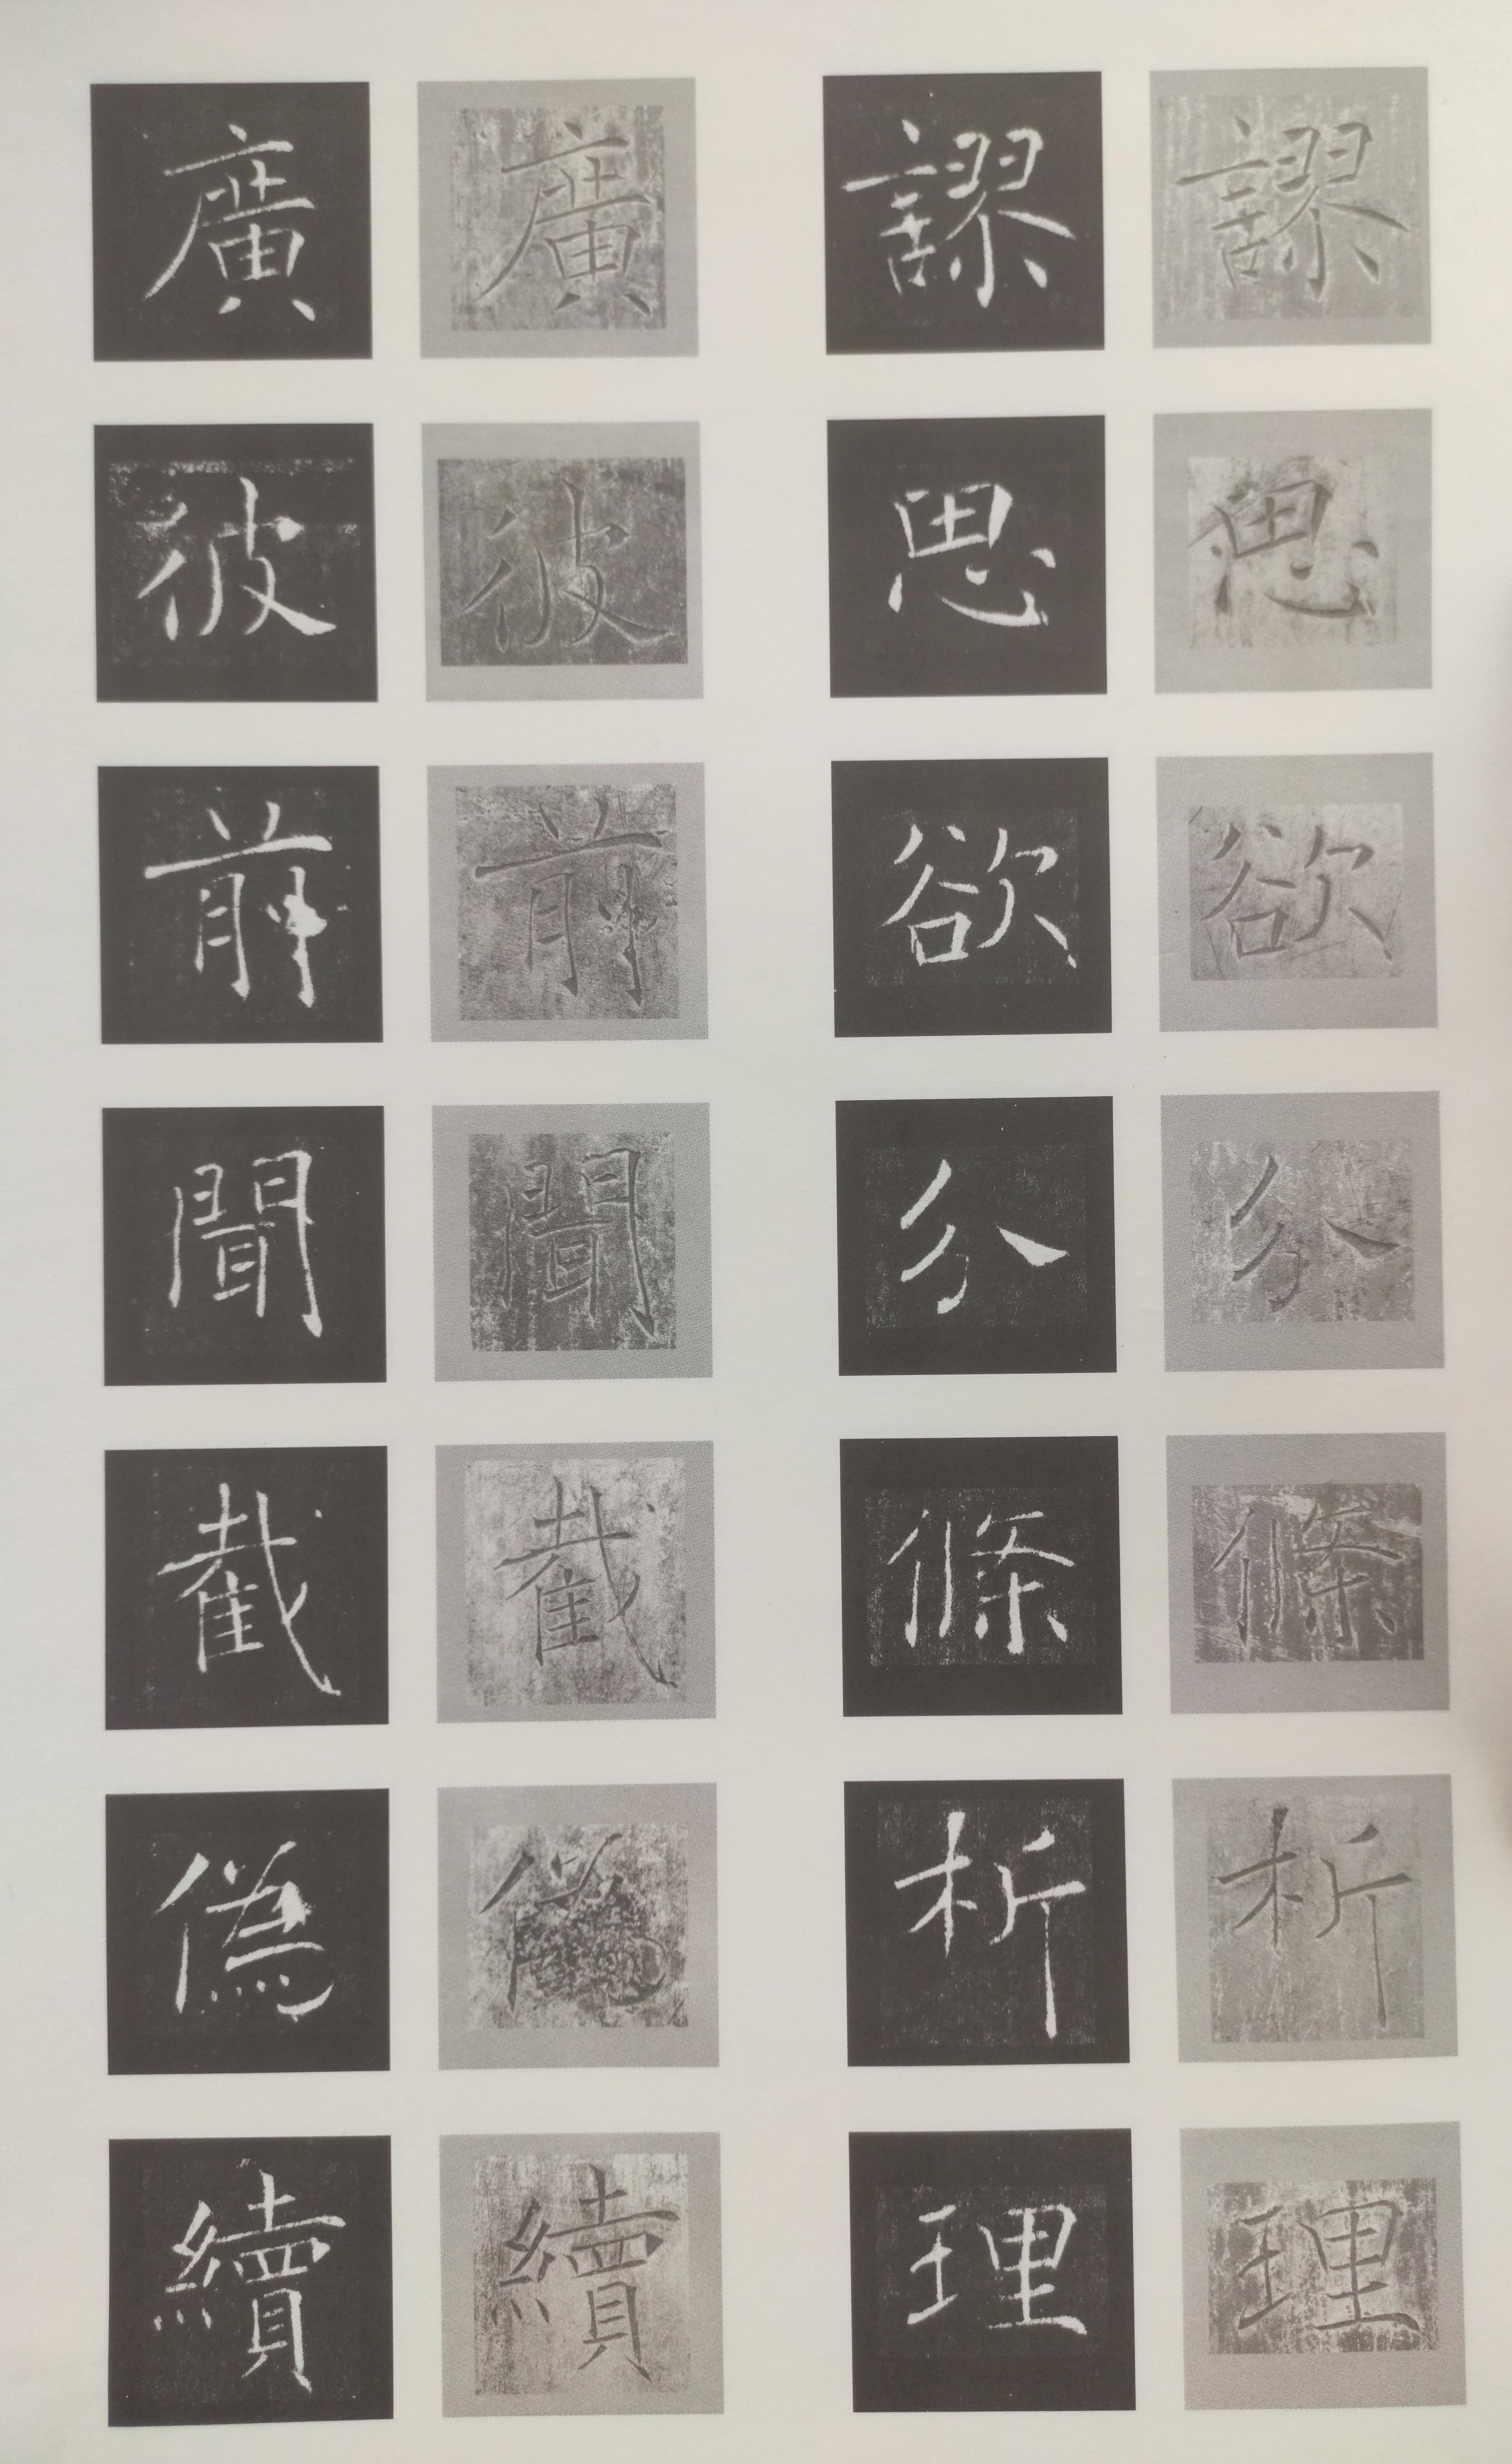 謬思欲分條析理
謬思欲分條析理
廣彼前聞截偽續
廣彼前聞截偽續